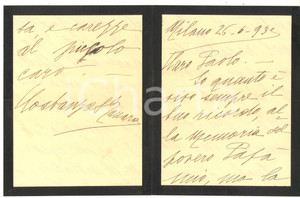 Milano 26-6-932
Caro Paolo —
So quanto è
vivo sempre il
tuo ricordo, al
la memoria del
povero Papà
mio, ma la
ta, e carezze
al piccolo
caro —
Costanza